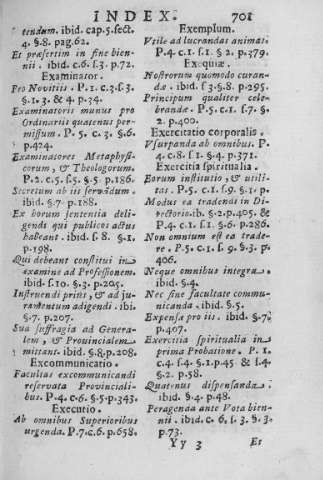 INDEX. 701
tendum. ibid. cap. 5. sect.
4. §. 8. pag. 62.
Et præsertim in fine bien-
nii. ibid. c. 6. s. 3. p. 72.
Examinator.
Pro Novitiis. P. 1. c. 3. s. 3.
§. 1. 3. & 4. p. 34.
Examinatoris munus pro
Ordinariis quatenus per-
missum. P. 5. c. 3. §. 6.
p. 424.
Examinatores Metaphysi-
corum, & Theologorum.
P. 2. c. 5. s. 5. §. 5. p. 186.
Secretum ab iis servandum.
ibid. §. 7. p. 188.
Ex horum sententia deli-
gendi qui publicos actus
habeant. ibid. s. 8. §. 1.
p. 198.
Qui debeant constitui in
examine ad Professionem.
ibid. s. 10. §. 3. p. 205.
Instruendi prius, & ad ju-
ramentum adigendi. ibi.
§. 7. p. 207.
Sua suffragia ad Genera-
lem, & Provincialem
mittant. ibid. §. 8. p. 208.
Excommunicatio.
Facultas excommunicandi
reservata Provinciali-
bus. P. 4. c. 6. §. 5. p. 343.
Executio.
Ab omnibus Superioribus
urgenda. P. 7. c. 6. p. 658.
Exemplum.
Vtile ad lucrandas animas.
P. 4. c. 1. s. 1. §. 2. p. 379.
Exequiæ.
Nostrorum quomodo curan-
dæ. ibid. s. 3. §. 8. p. 295.
Principum qualiter cele-
brandæ. P. 5. c. 1. s. 7. §.
2. p. 400.
Exercitatio corporalis.
Vsurpanda ab omnibus. P.
4. c. 8. s. 1. §. 4. p. 371.
Exercitia spiritualia.
Eorum institutio, & utili-
tas. P. 5. c. 1. s. 9. §. 1. p.
Modus ea tradendi in Di-
rectorio. ib. §. 2. p. 405. &
P. 4. c. 1. s. 1. §. 6. p. 286.
Non omnium est ea trade-
re. P. 5. c. 1. s. 9. §. 3. p.
406.
Neque omnibus integra.
ibid. §. 4.
Nec sine facultate commu-
nicanda. ibid. §. 5.
Expensæ pro iis. ibid. §. 7.
p. 407.
Exercitia spiritualia in
prima Probatione. P. 1.
c. 4. s. 4. §. 1. p. 45. & s. 4.
§. 2. p. 58.
Quatenus dispensanda.
ibid. §. 4. p. 48.
Peragenda ante Vota bien-
nii. ibid. c. 6. s. 3. §. 3.
p. 73.
Yy 3 Et